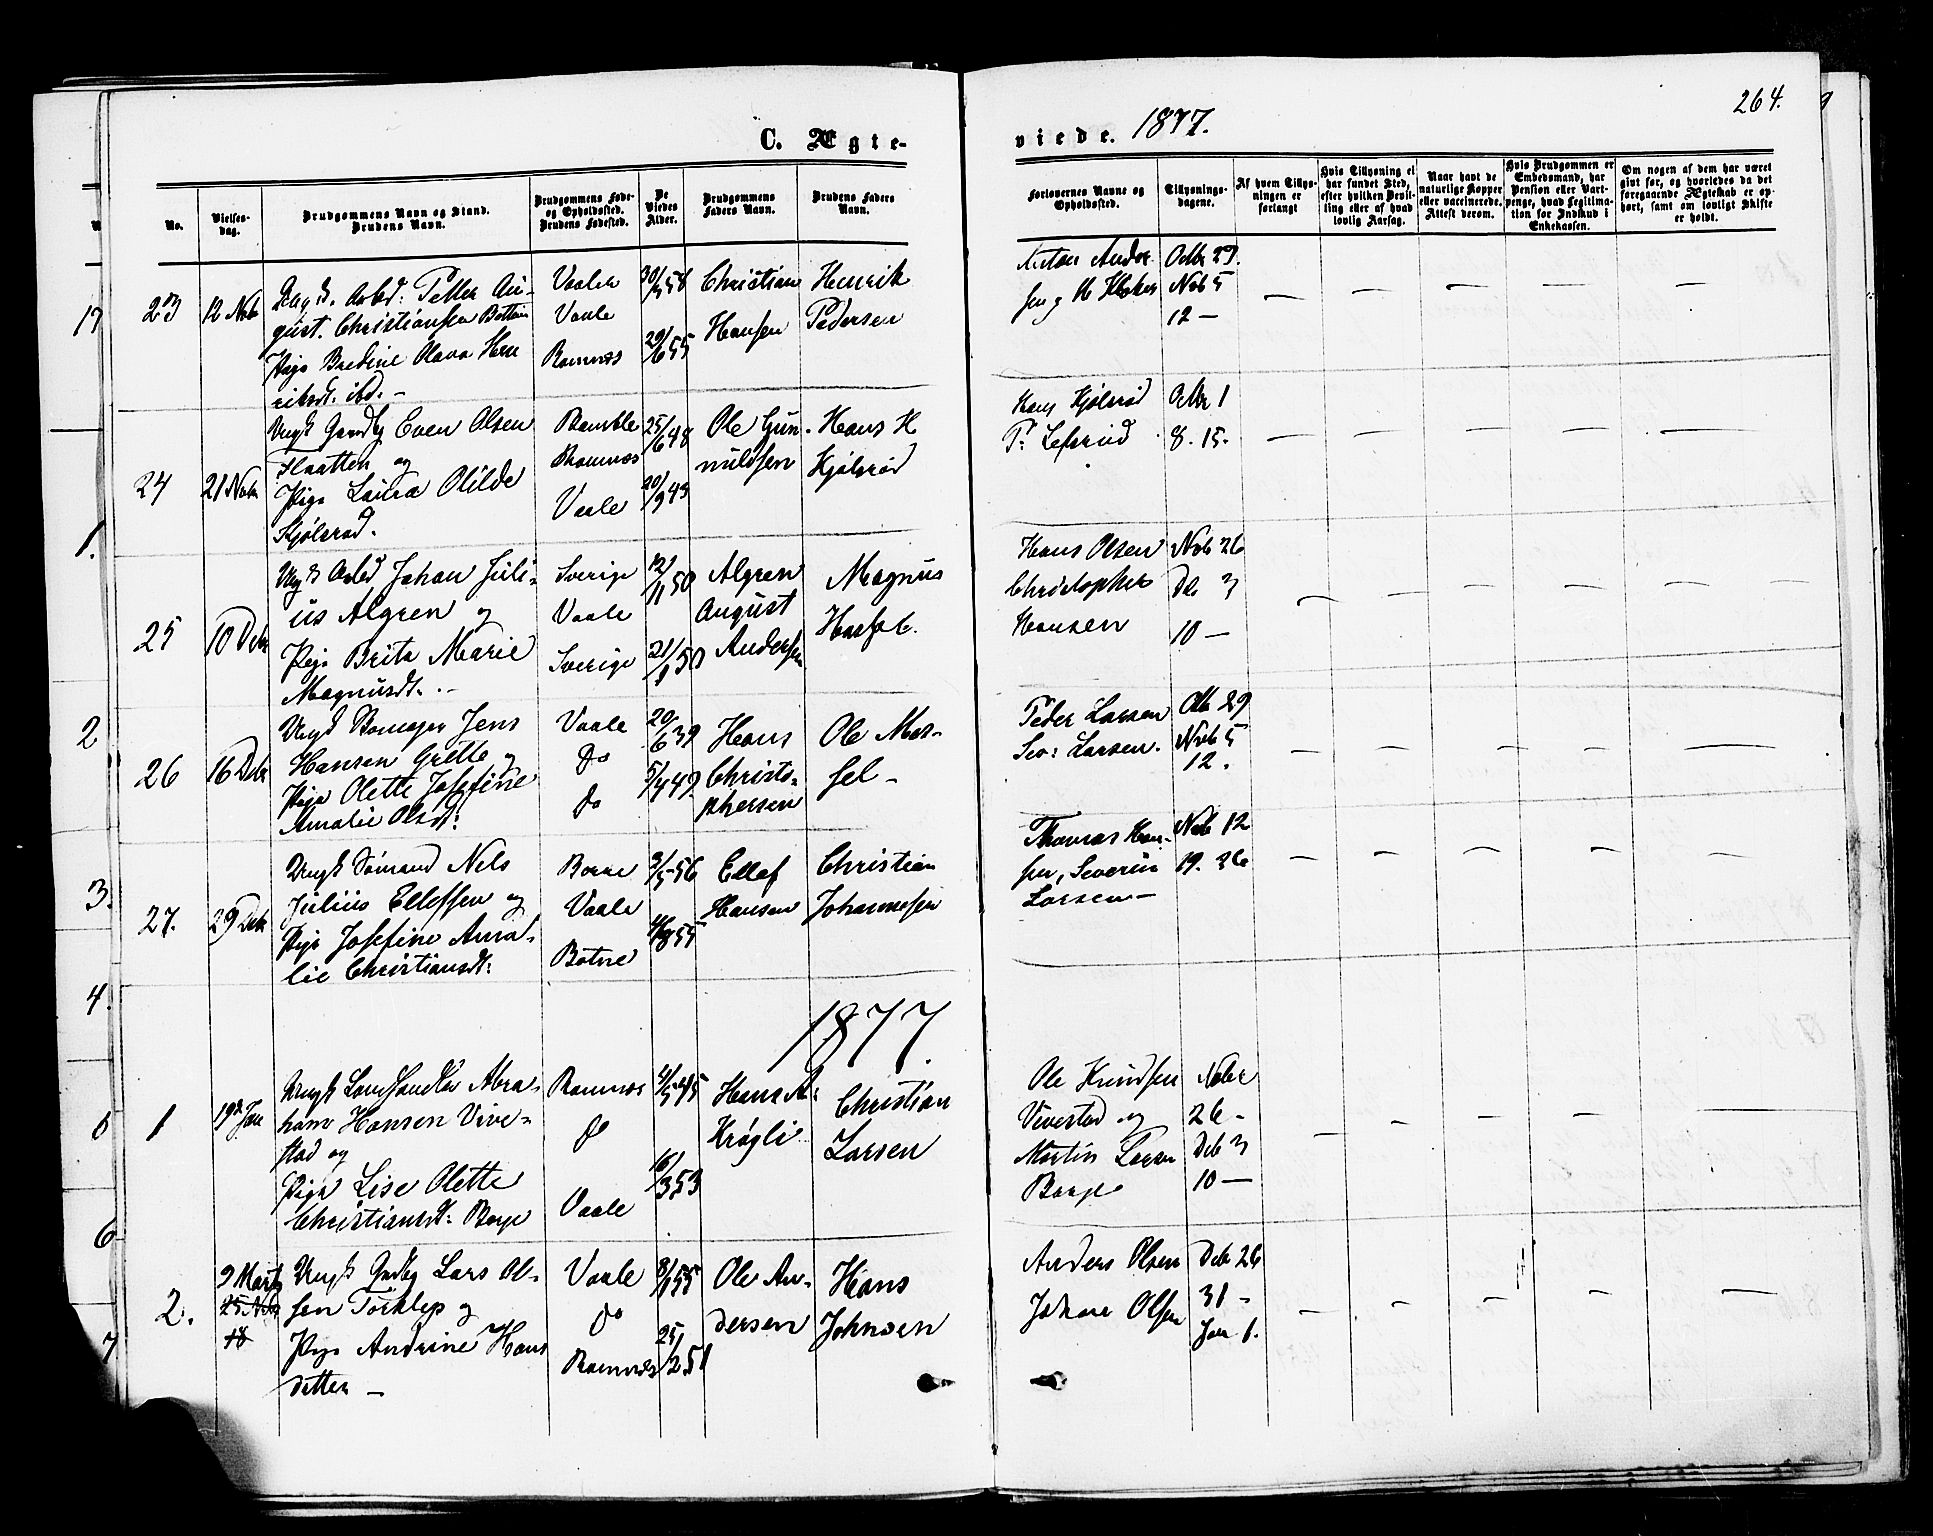 264.
C. Ægte-
viede. 1877.
No.
Vielses-
dag.
Brudgommens Navn og Stand.
Brudens Navn.
Brudgommens Føde-
og Opholdssted.
Brudens Fødested.
De
Viedes
Alder.
Brudgommens
Faders Navn.
Brudens Faders
Navn.
Forlovernes Navne og
Opholdssted.
Tillysnings-
dagene.
Af hvem Tillys-
ningen er
forlangt
Hvis Tillysning ei
har fundet Sted,
efter hvilken Bevil-
ling eller af hvad
lovlig Aarsag.
Naar havt de
naturlige Kopper
eller vaccinerede.
Attest derom.
Hvis Brudgommen er
Embedsmand, har
Pension eller Vart-
penge, hvad Legitima-
tion for Indskud i
Enkekassen.
Om nogen af dem har været
givt før, og hvorledes da det
foregaaende Ægteskab er op-
hørt, samt om lovligt Skifte
er holdt.
23
12 Nob
Petter Au-
gust. Christiansen
Pige Bredine Olava Hen
riksdt. ibd. -
Vaale
Ramnes
30/ 58
29/6 55
Christian
Hansen
Henrik
Pedersen
Anton Ander
sen
Octbr 29.
Nob 5
12 —
24
21 Nobr
Ungk Gaardbg Even Olsen
Flaatten og
Pige Laura Olilde
Kjølsrød.
Bamble
Ramnes
Vaale
25/6 48
20/9 49
Ole Gun-
nuldsen
Hans H
Kjølsrød
Hans Kjølsrød
Octbr 1
8. 15.
25
10 Debr
Ungk Arbd Johan Juli-
us Algren og
Pige Brita Marie
Magnusdt. . -
Sverige
Vaale
Sverige
12/11 50
21/1 50
Algren
August
Andersen
Magnus
Hans Olsen
Christopher
Hansen
Nob 26
De 3
10 —
26
16 Debr
Jens
Hansen Grette og
Pige Olette Josefine
Amalie Olsdt:
Vaale
do
do
20/6 39
5/4 49.
Hans
Christo-
phersen
Ole Mes-
sel -
Peder Larsen
Sev: Larsen.
29
Nob 5
12.
27.
29 Debr
Ungk Sømand Nels
Julius Ellefsen og
Pige Josefine Ama-
lie Christiansdt:
Borre
Vaale
Botne
3/5 56
/8 55
Ellef
Hansen
Christian
Johannesen
Thomas Han-
sen, Severin
Larsen —
Nob 12
19. 26
1877.
1
19de Jan
Ungk Landhandler Abra-
ham Hansen Vive-
stad og
Pige Lise Olette
Christiansdt: Borge
Ramnes
do
Vaale
4/5 45
16/3 53
Hans A:
Krøgli
Christian
Larsen
Ole Knudsen
Vivestad og
Martin Larsen
Borge
Nobr
26 -
Deb 3
10 —
2.
9 Marts
25 Nob
18
Ungk Gaardbg Lars Ol-
sen Torklep og
Pige Andrine Hans
datter —
Vaale
do
Ramnes
8/1 55
25/2 51
Ole An-
dersen
Hans
Johnsen
Anders Olsen
Johan Olsen
Deb 26
31 -
Jan 1.